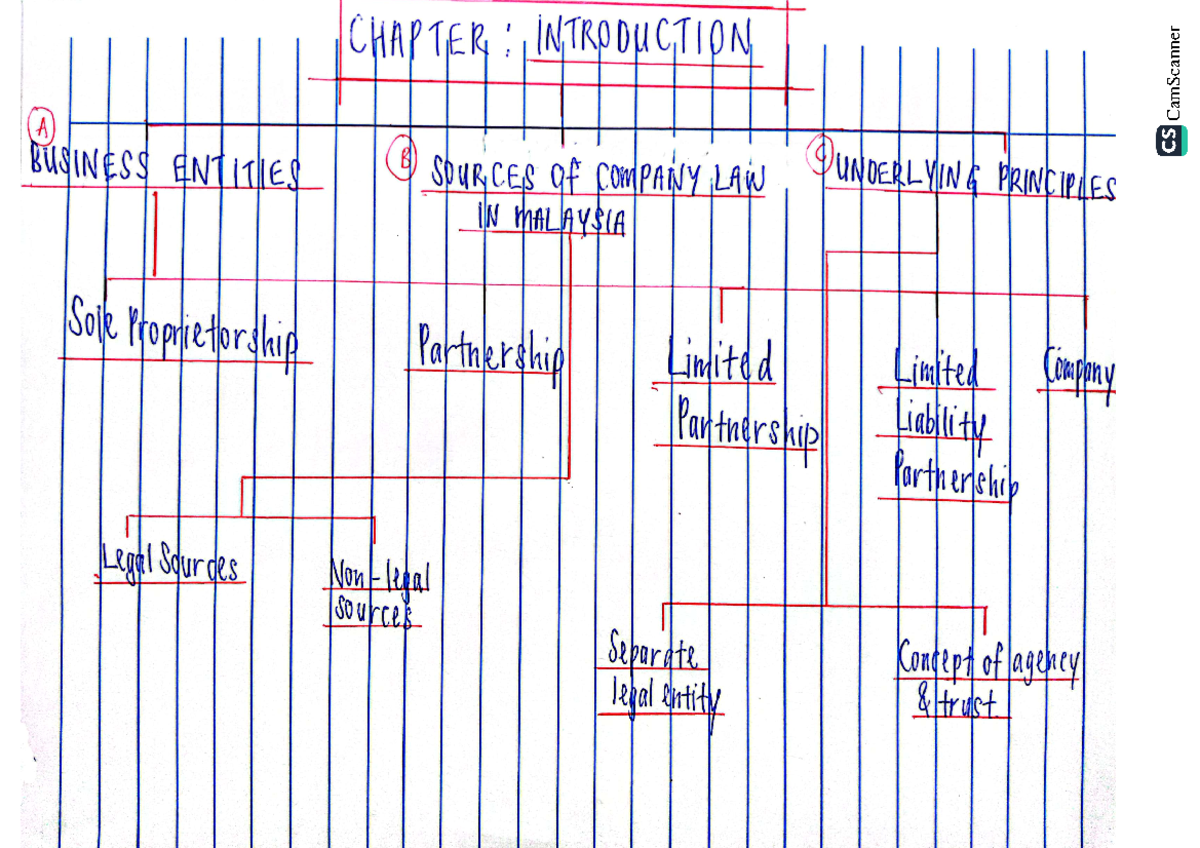 CHAPTER : INTRODUCTION
A
BUSINESS ENTITIES
B
SOURCES OF COMPANY LAW
IN MALAYSIA
C
UNDERLYING PRINCIPLES
Sole Proprietorship
Partnership
Limited
Partnership
Limited
Liability
Partnership
Company
Legal Sources
Non-legal
sources
Separate
legal entity
Concept of agency
& trust
CS CamScanner